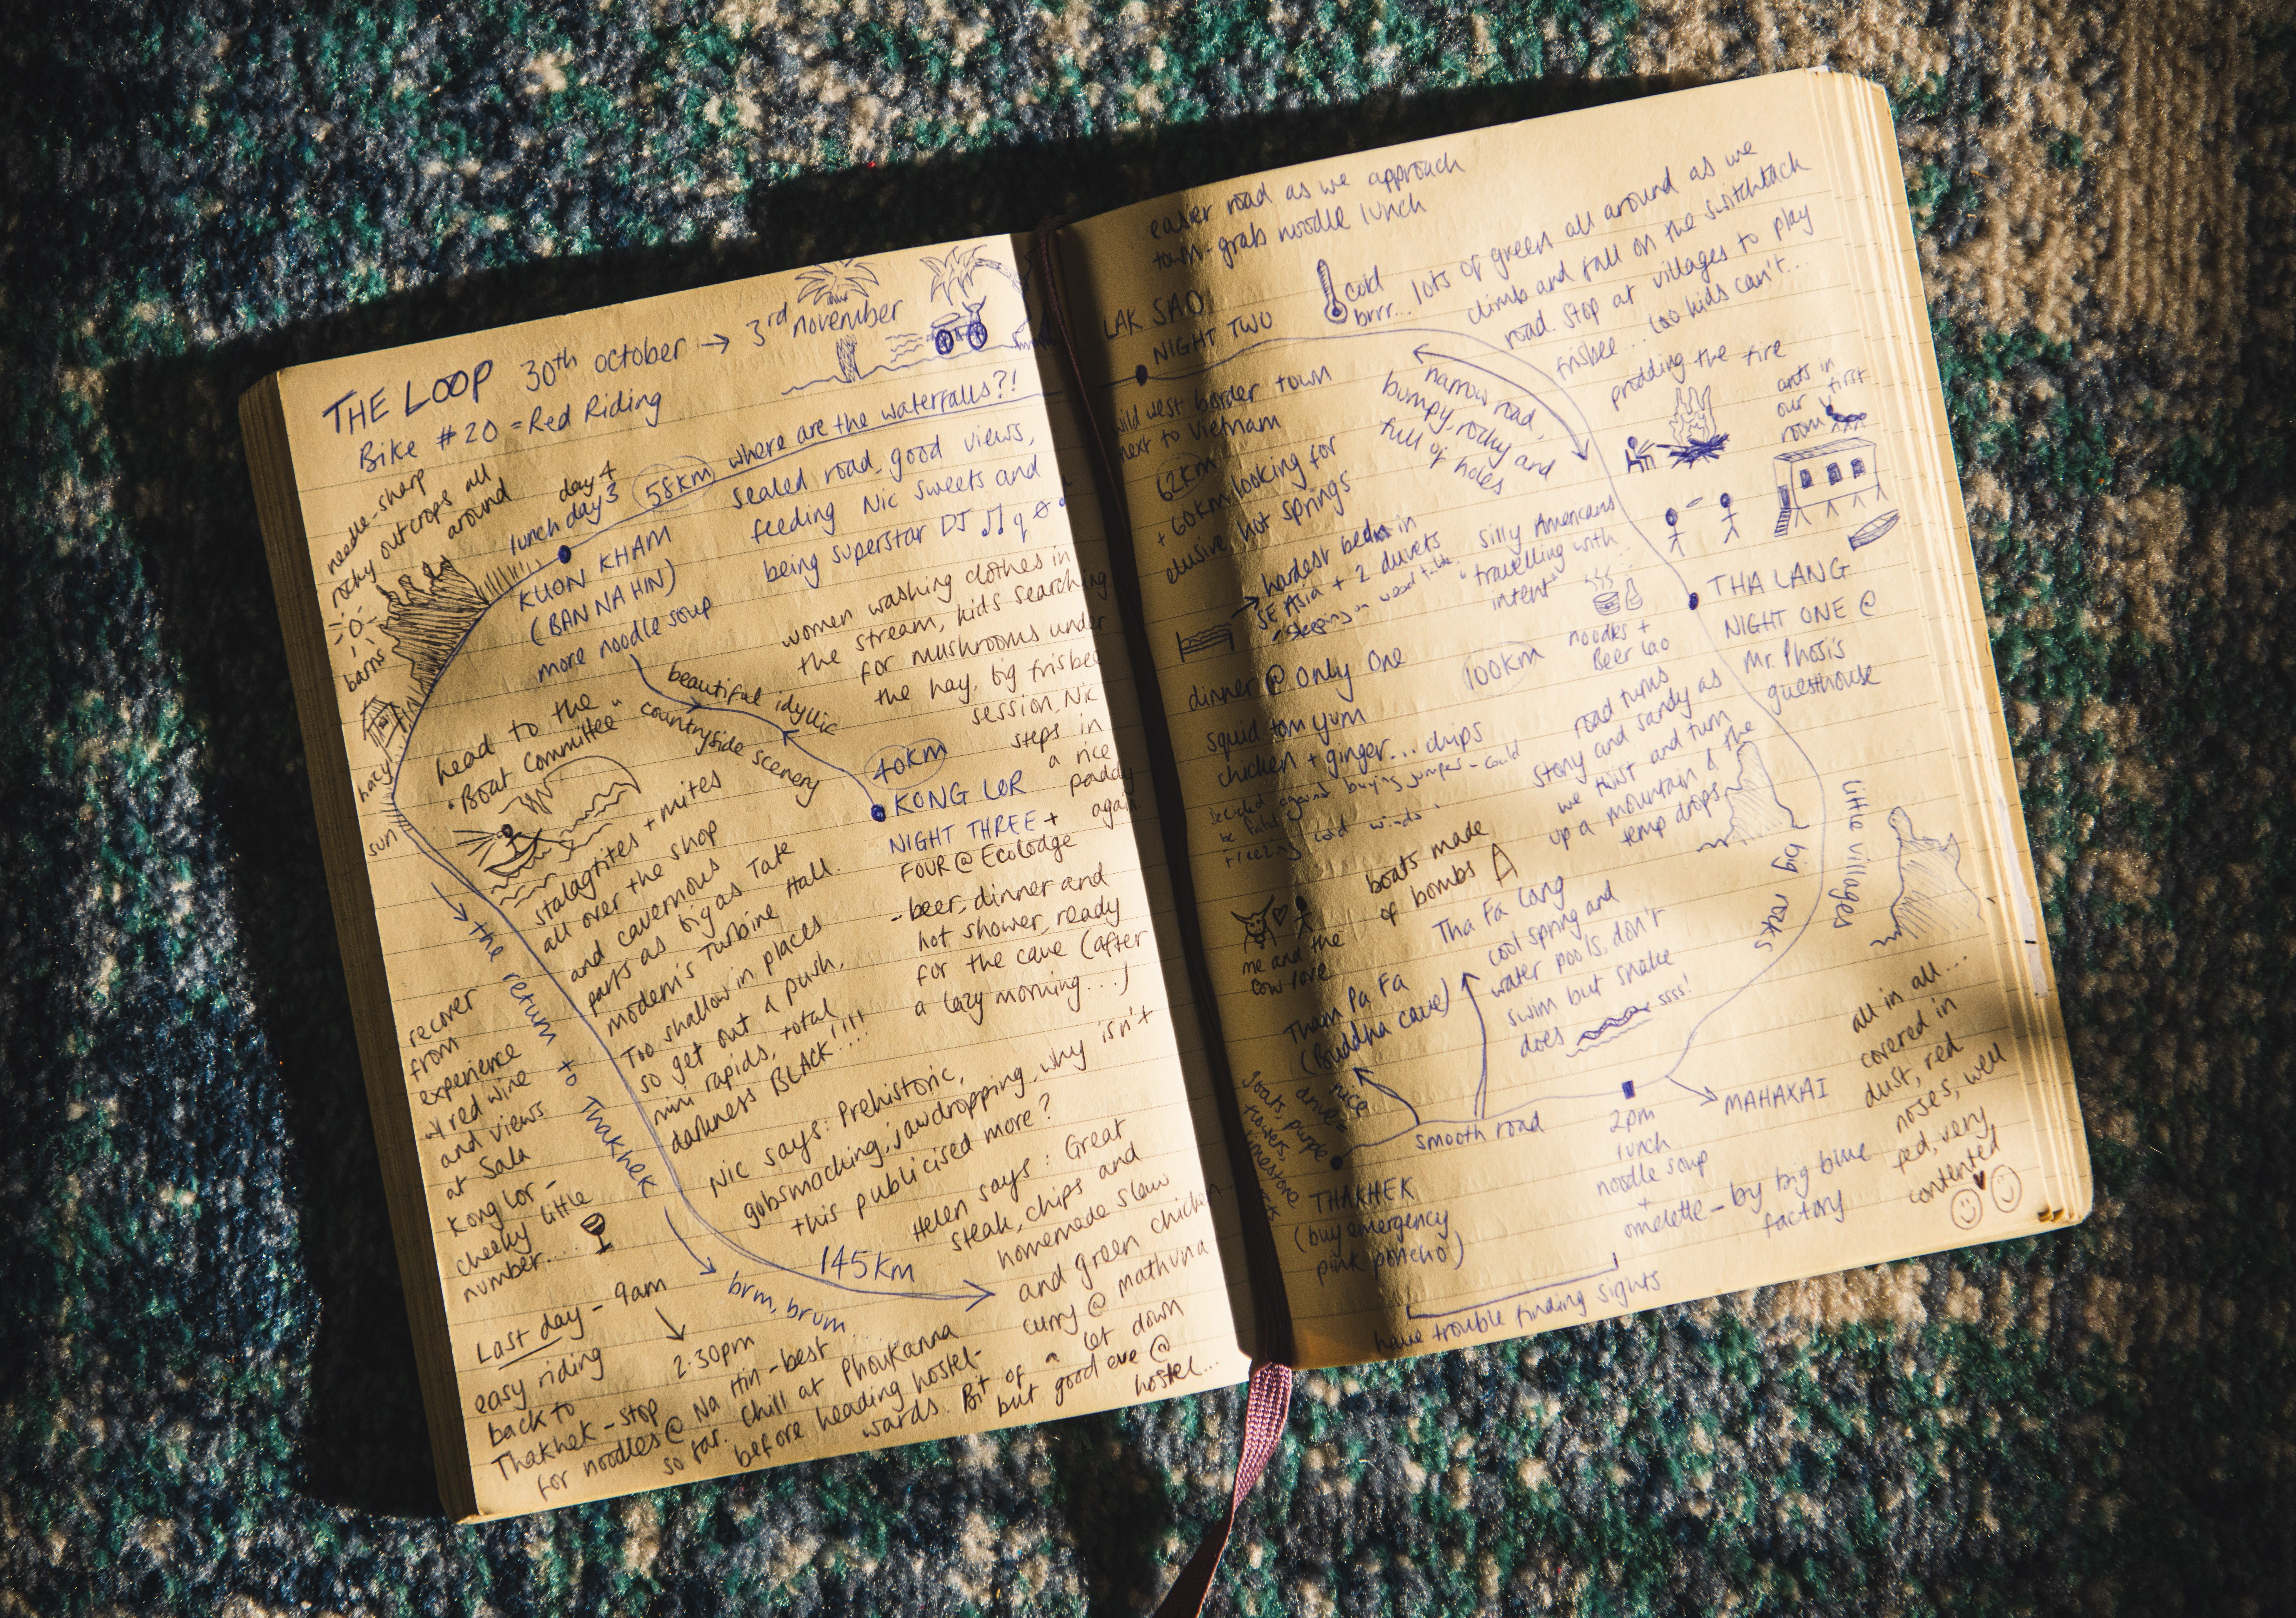 THE LOOP 30th october → 3rd november
Bike #20 = Red Riding
needle-sharp
rocky outcrops all
around
lunch day 3
day 4
58km
where are the waterfalls?!
sealed road, good views,
feeding Nic sweets and
being superstar DJ
KUON KHAM
(BAN NA HIN)
more noodle soup
barns
hazy
sun
women washing clothes in
the stream, kids searching
for mushrooms under
the hay, big frisbee
session, Nic
steps in
a rice
paddy
again.
beautiful idyllic
countryside scenery
40km
KONG LOR
NIGHT THREE +
FOUR @ Ecolodge
- beer, dinner and
hot shower, ready
for the cave (after
a lazy morning...)
head to the
"Boat Committee"
stalagtites + mites
all over the shop
and cavernous
parts as big as Tate
modern's Turbine Hall.
Too shallow in places
so get out a push,
mini rapids, total
darkness BLACK!!!!
→ the return to Thakhek
recover
from
experience
w/ red wine
and views
at Sala
Kong Lor -
cheeky little
number....
Nic says: Prehistoric,
gobsmacking, jawdropping, why isn't
this publicised more?
Helen says: Great
steak, chips and
homemade slaw
and green chicken
curry @ mathuna
145km
brm, brum
Last day - 9am
↓
2.30pm
easy riding
back to
Thakhek - stop
for noodles @ Na Hin - best
so far. Chill at Phoukanna
before heading hostel-
wards. Bit of a let down
but good eve @
hostel...
easier road as we approach
town - grab noodle lunch
LAK SAO
NIGHT TWO
cold
brrr...
lots of green all around as we
climb and fall on the switchback
road. Stop at villages to play
frisbee... Lao kids can't...
wild west border town
next to Vietnam
62km
+ 60km looking for
elusive hot springs
narrow road,
bumpy, rocky and
full of holes
prodding the fire
ants in
our first
room
→ hardest bed in
SE Asia + 2 duvets
silly Americans
"travelling with
intent"
THA LANG
NIGHT ONE @
Mr. Phosi's
guesthouse
noodles +
Beer Lao
100km
dinner @ Only One
squid tom yum
chicken + ginger... chips
decided against buying jumper - could
freezing cold winds
road turns
stony and sandy as
we twist and turn
up a mountain & the
temp drops
big rocks
little villages
boats made
of bombs
me and the
cow love
Tham Pa Fa
(Buddha cave)
Tha Fa Lang
cool spring and
water pools, don't
swim but snake
does
ssss!
nice
drive =
goats, purple
flowers,
limestone
THAKHEK
(buy emergency
pink poncho)
smooth road
2pm
lunch
noodle soup
+
omelette - by big blue
factory
MAHAXAI
have trouble finding sights
all in all...
covered in
dust, red
noses, well
fed, very
contented